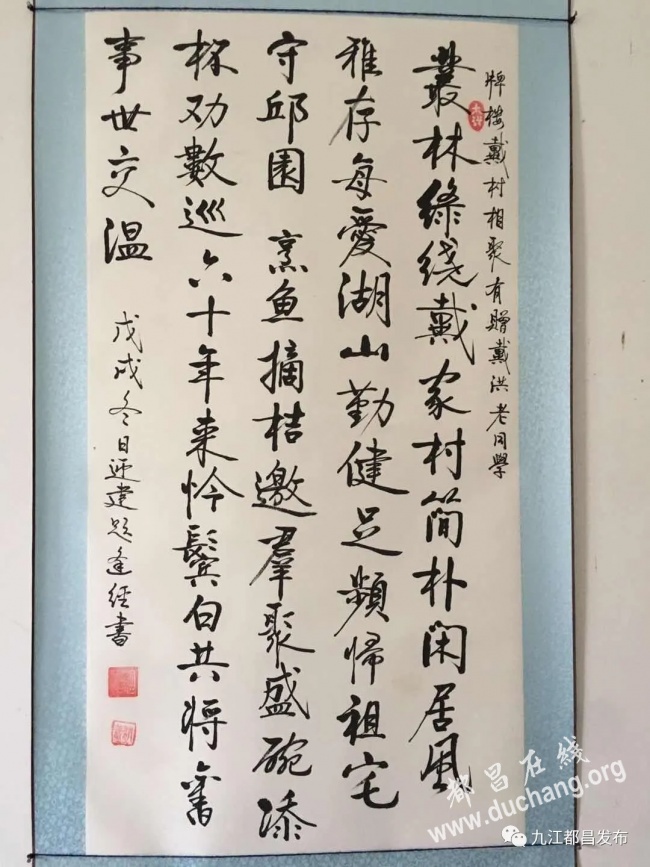 牌楼戴村相聚有赠戴洪老同學
叢林綠绕戴家村簡朴闲居風
雅存每愛湖山勤健足頻帰祖宅
守邱園 烹鱼摘桔邀羣聚盛碗添
杯劝數巡六十年来怜鬓白共将舊
事世交温
戊戌冬日迎建題逢经書
都昌在线
www.duchang.org
九江都昌发布